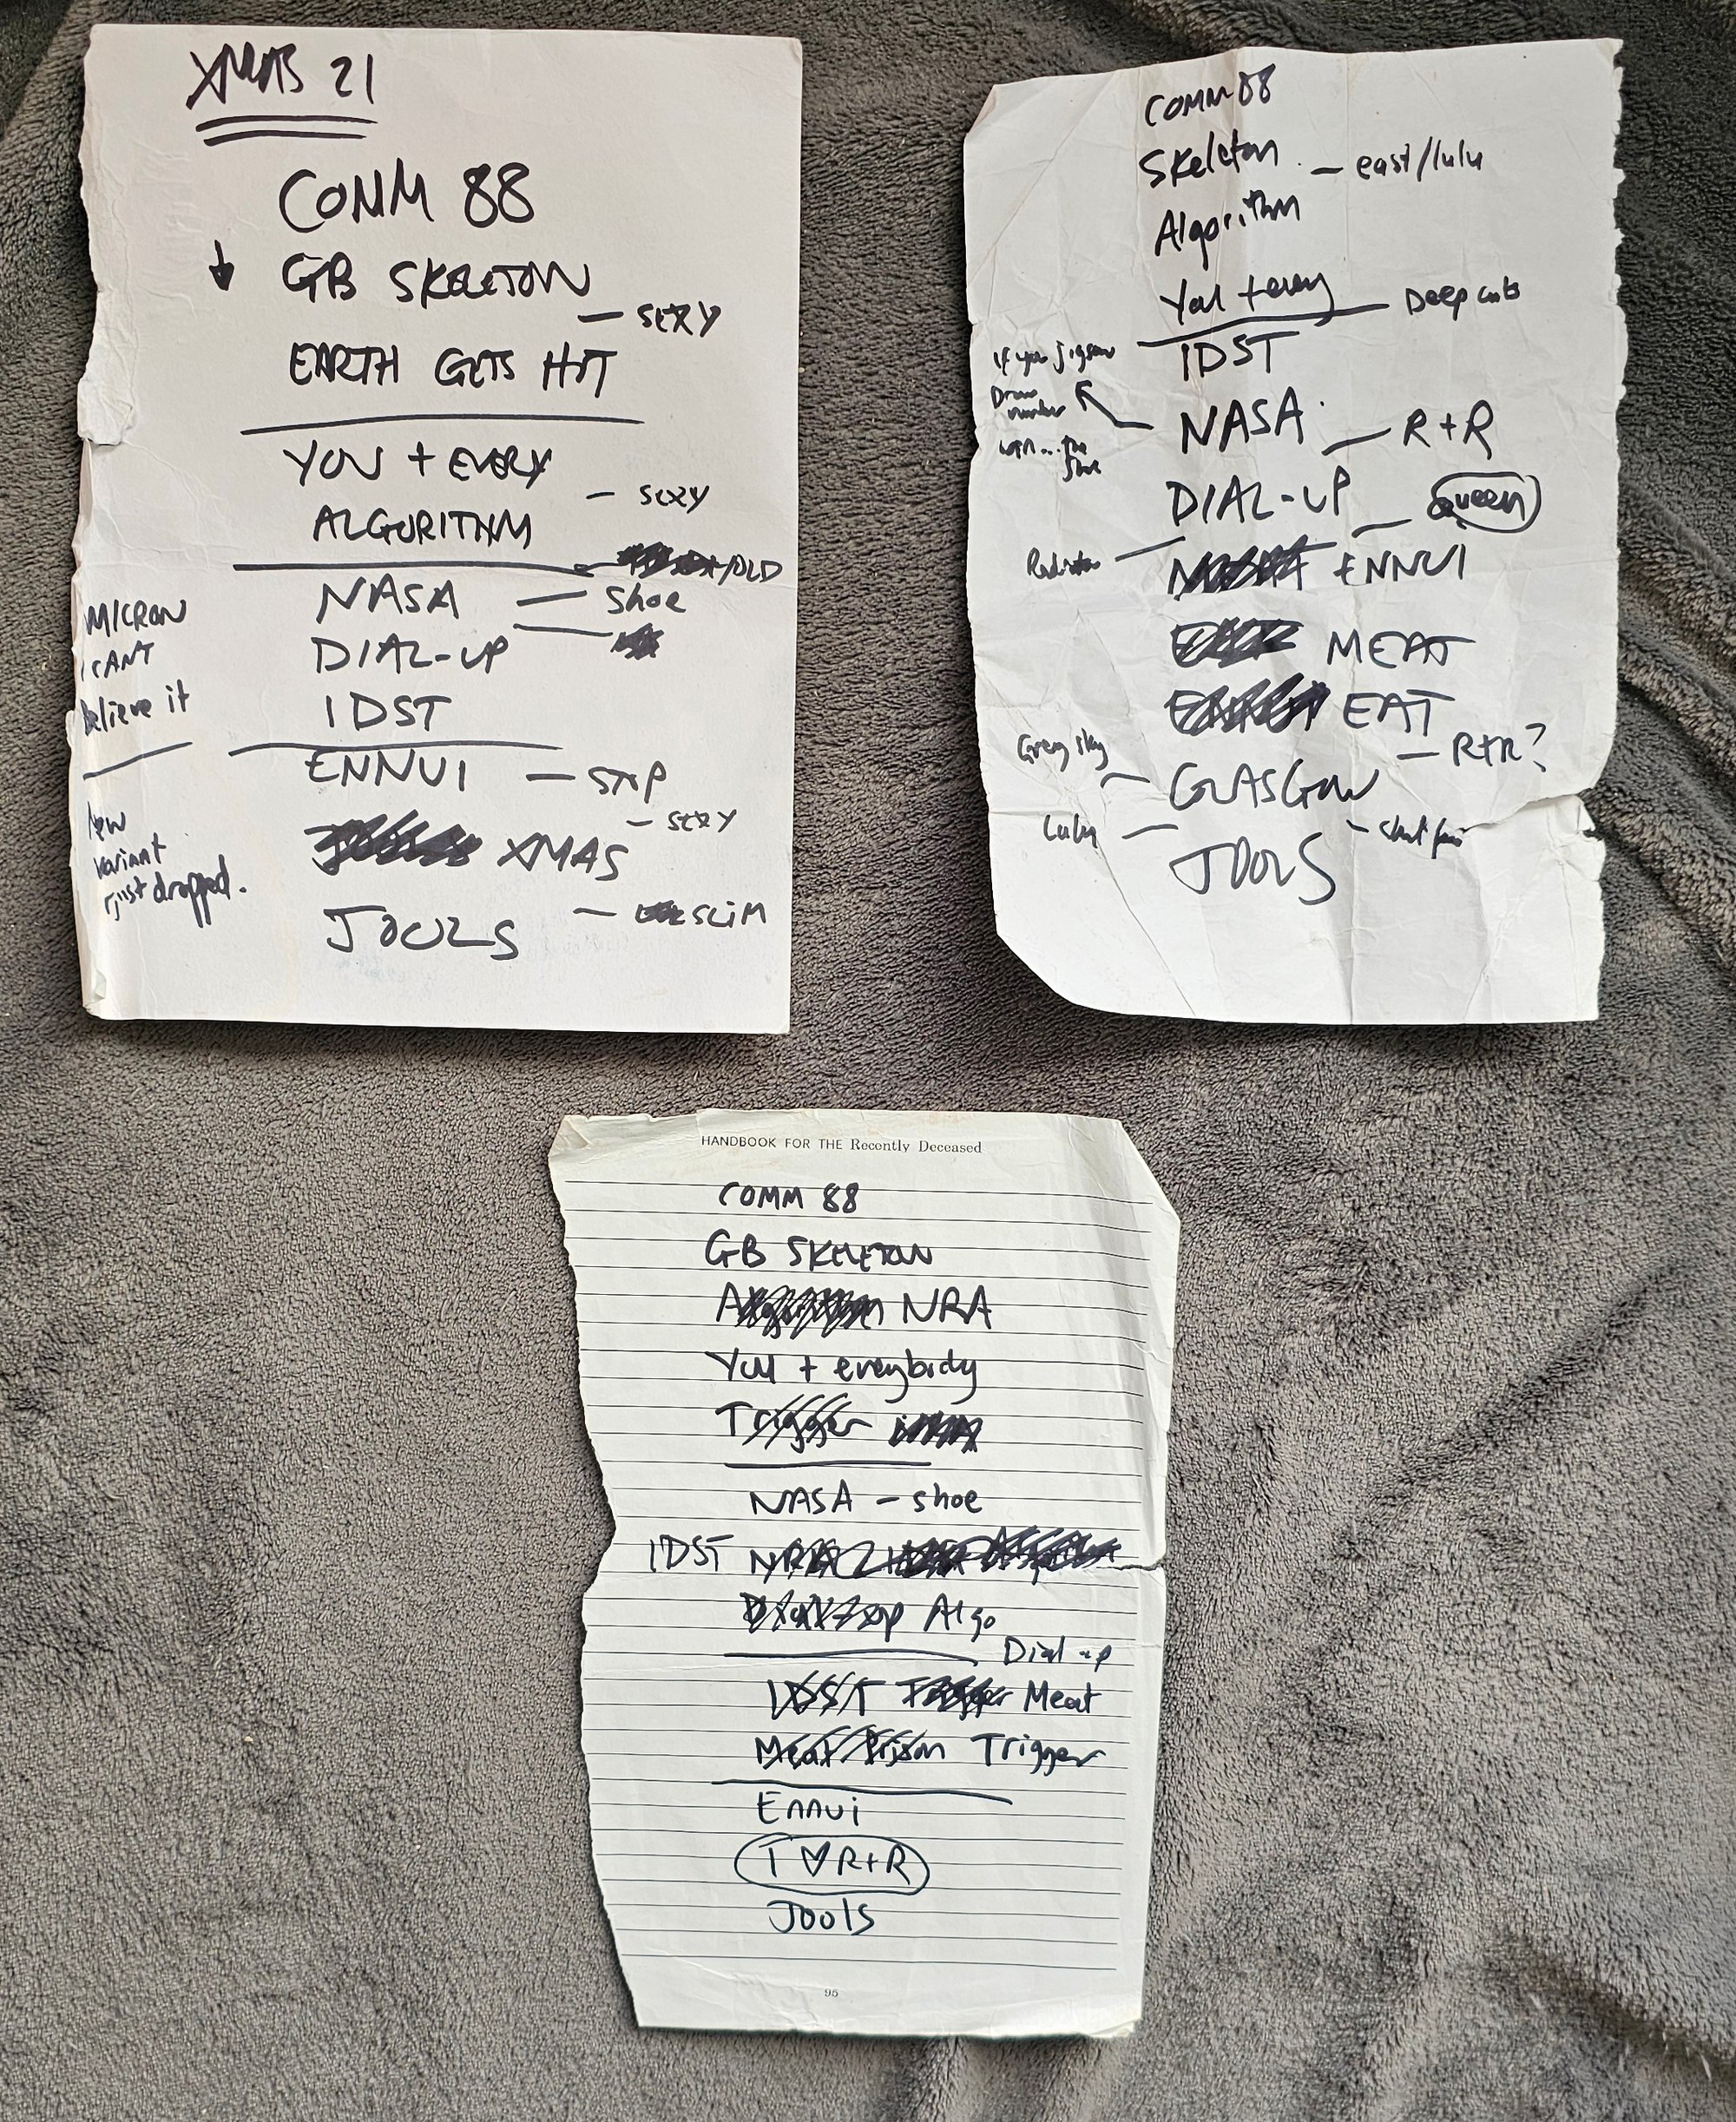 XMAS 21
COMM 88
GB SKELETON
– SEXY
EARTH GETS HIT
YOU + EVERY
– SEXY
ALGORITHM
/OLD
NASA – Shoe
DIAL-UP
IDST
MICRON
I CANT
believe it
ENNUI – STRP
– SEXY
XMAS
New
variant
just dropped.
JOOLS – SLIM
COMM 88
Skeleton
– east/lulu
Algorithm
You + every – Deep cuts
IDST
If you jigsaw
Draw
number
NASA
– R+R
shoe
DIAL-UP
– Queen
ENNUI
MEAT
EAT
– R+R?
Grey sky
GLASGOW
JOOLS
HANDBOOK FOR THE Recently Deceased
COMM 88
GB SKELETON
NRA
You + everybody
Trigger
NASA – shoe
IDST NRA
Algo
Dial-up
IDST Meat
Meat Prison Trigger
Ennui
I ♥ R+R
Jools
95